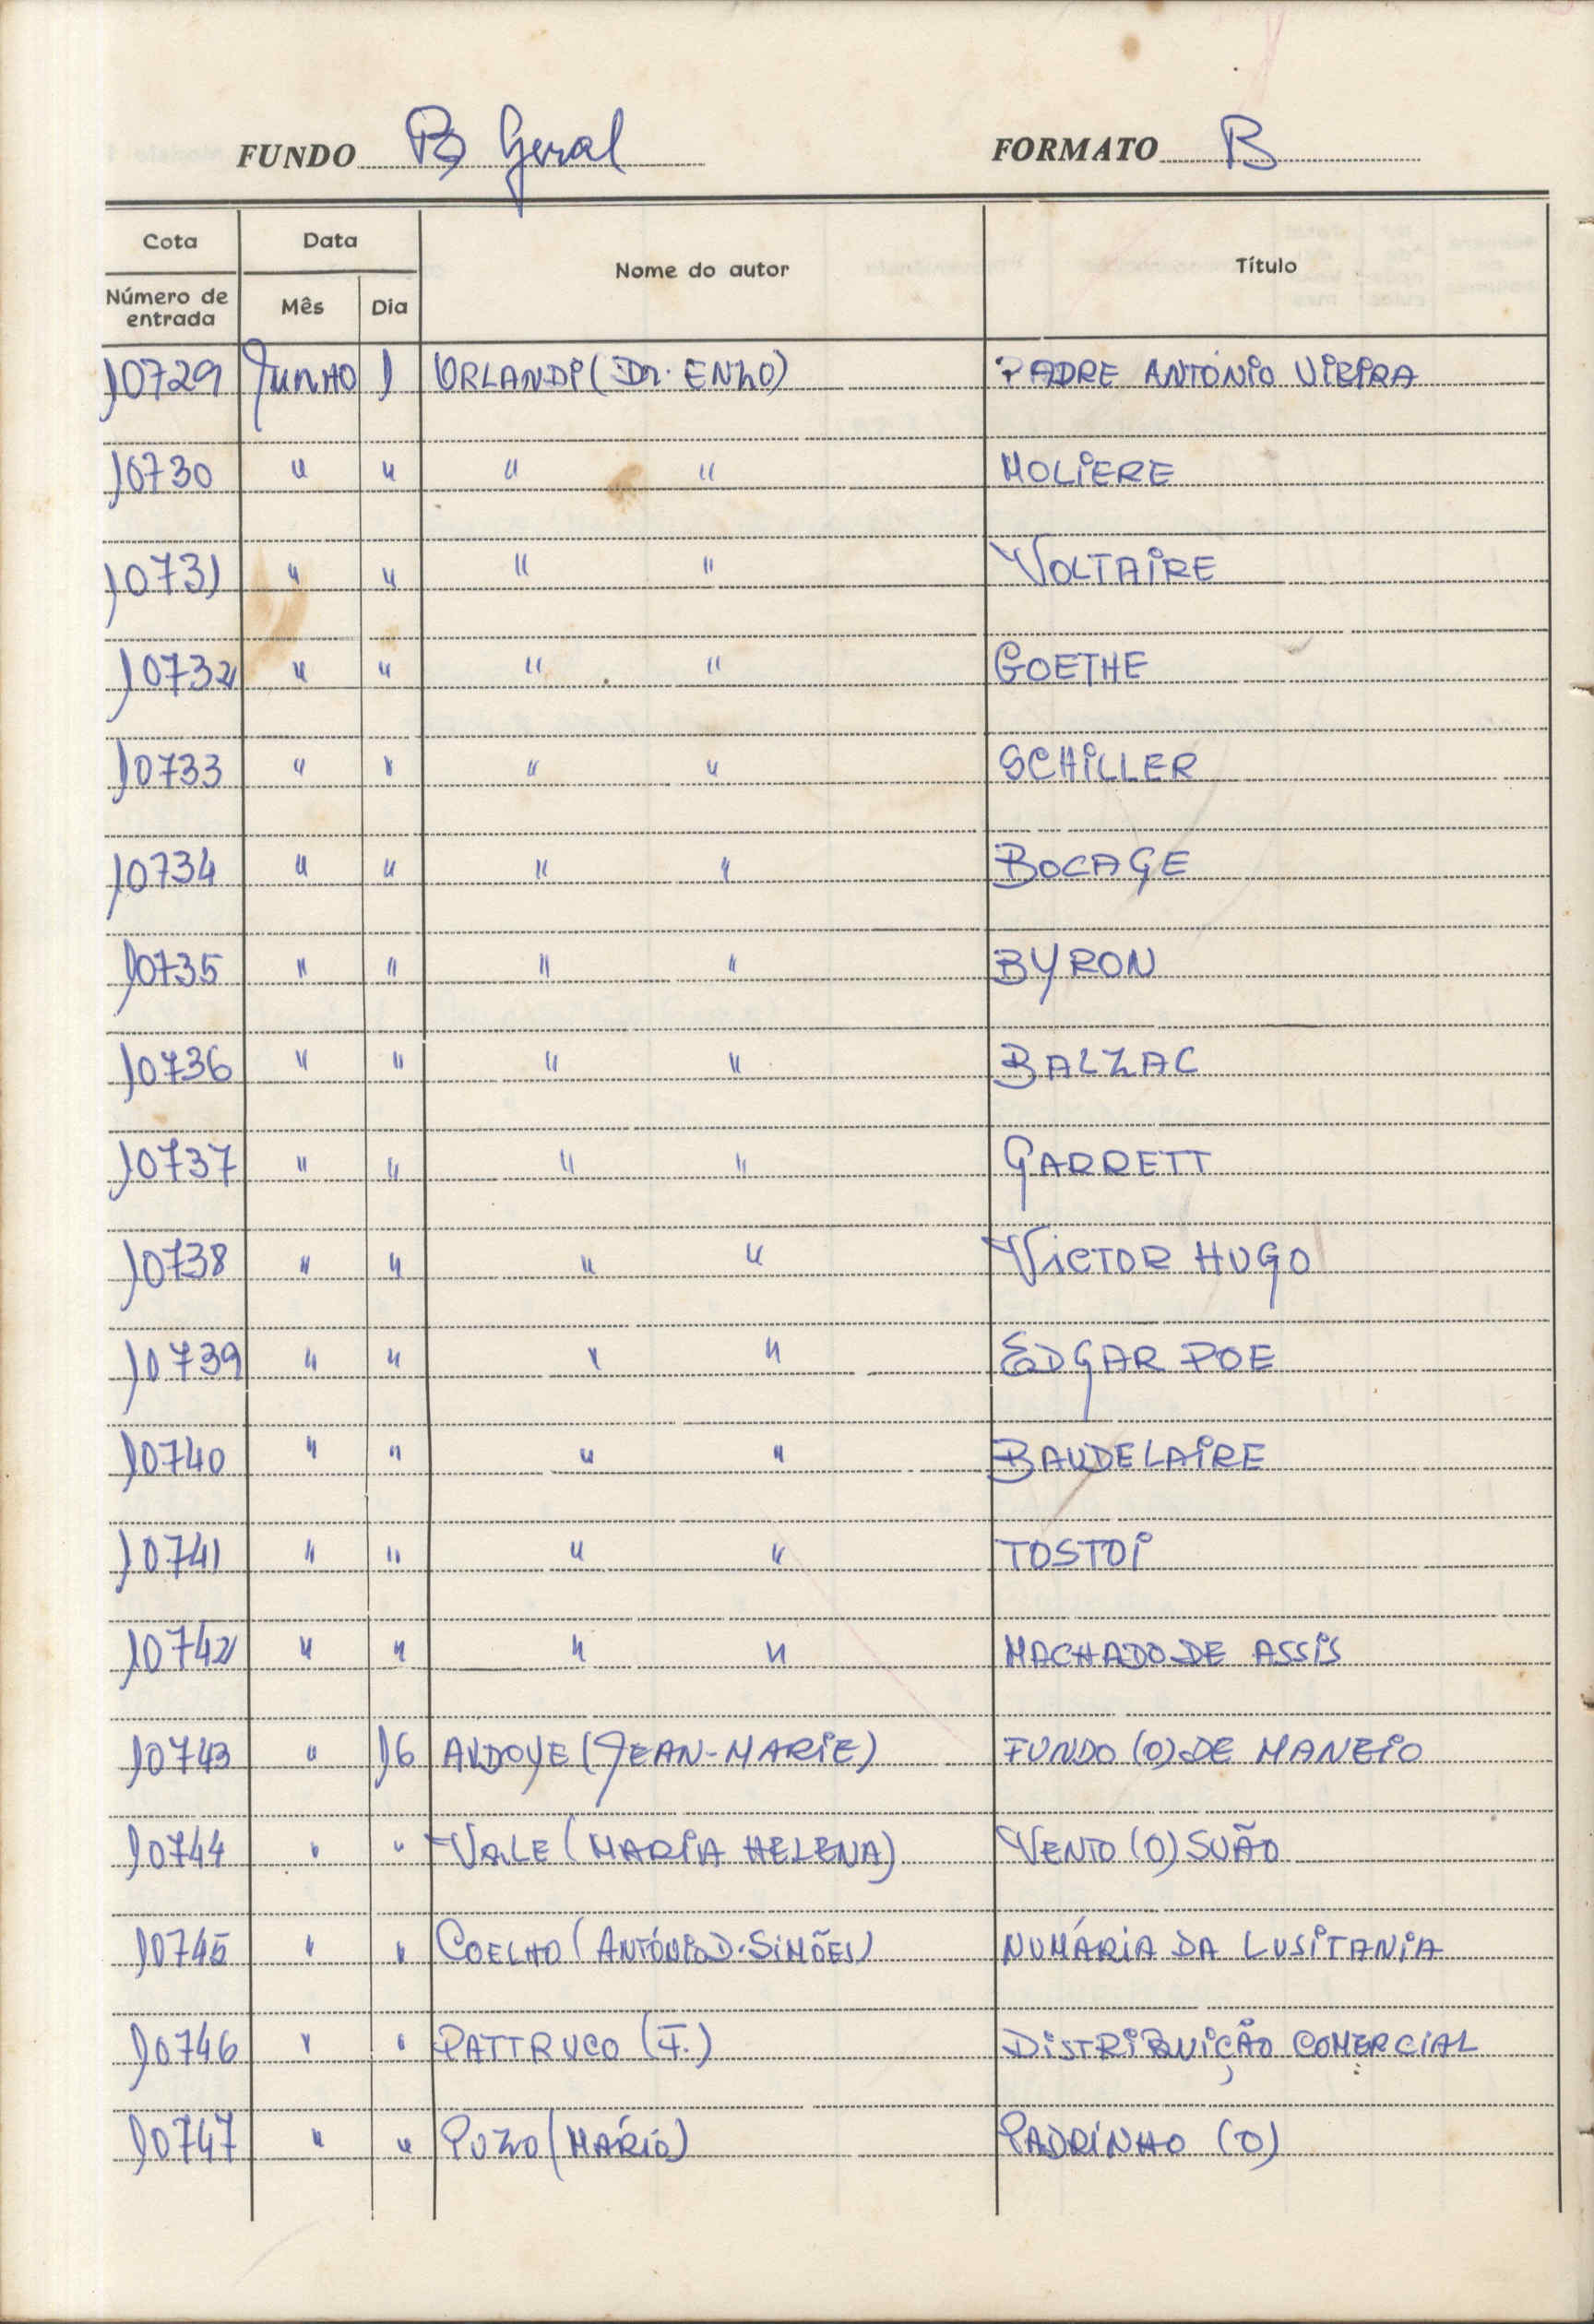 FUNDO B Geral FORMATO B
Cota Data Nome do autor Título
Número de entrada Mês Dia
10729 JUNHO 1 ORLANDI (Dr. ENZO) PADRE ANTÓNIO VIEIRA
10730 " " " " MOLIERE
10731 " " " " VOLTAIRE
10732 " " " " GOETHE
10733 " " " " SCHILLER
10734 " " " " BOCAGE
10735 " " " " BYRON
10736 " " " " BALZAC
10737 " " " " GARRETT
10738 " " " " VICTOR HUGO
10739 " " " " EDGAR POE
10740 " " " " BAUDELAIRE
10741 " " " " TOSTOI
10742 " " " " MACHADO DE ASSIS
10743 " 16 (JEAN-MARIE) FUNDO (O) DE MANEIO
10744 " " VALE (MARIA HELENA) VENTO (O) SUÃO
10745 " " COELHO (ANTÓNIO D. SIMÕES) NUMÁRIA DA LUSITANIA
10746 " " PATTRUCO (F.) DISTRIBUIÇÃO COMERCIAL
10747 " " PUZO (MÁRIO) PADRINHO (O)